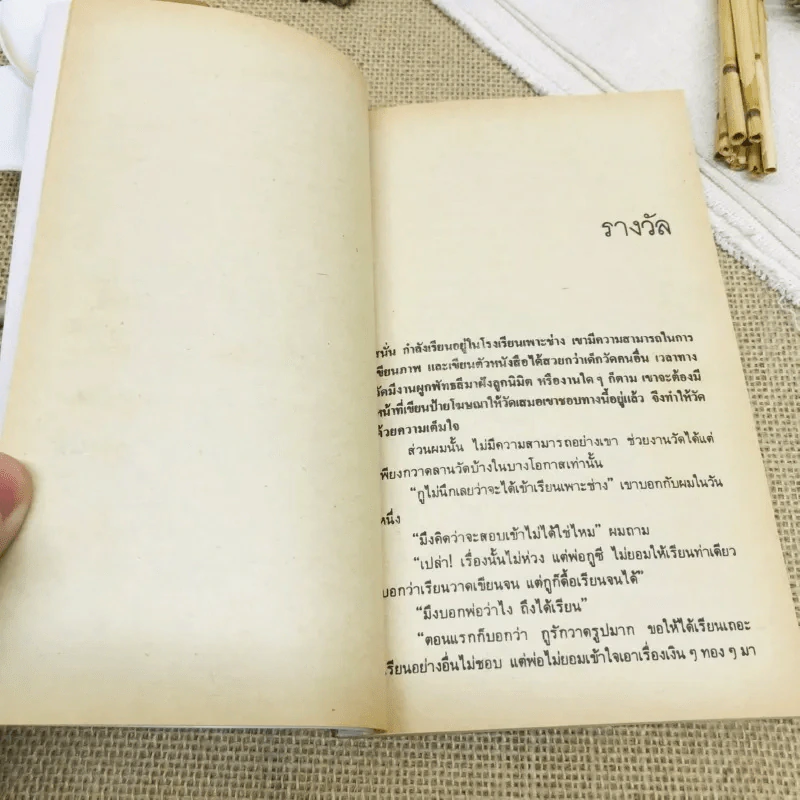 รางวัล
กำลังเรียนอยู่ในโรงเรียนเพาะช่าง เขามีความสามารถในการ
เขียนภาพ และเขียนตัวหนังสือได้สวยกว่าเด็กวัดคนอื่น เวลาทาง
วัดมีงานผูกพัทธสีมาฝังลูกนิมิต หรืองานใด ๆ ก็ตาม เขาจะต้องมี
หน้าที่เขียนป้ายโฆษณาให้วัดเสมอเขาชอบทางนี้อยู่แล้ว จึงทำให้วัด
ด้วยความเต็มใจ
ส่วนผมนั้น ไม่มีความสามารถอย่างเขา ช่วยงานวัดได้แต่
เพียงกวาดลานวัดบ้างในบางโอกาสเท่านั้น
“กูไม่นึกเลยว่าจะได้เข้าเรียนเพาะช่าง” เขาบอกกับผมในวัน
หนึ่ง
“มึงคิดว่าจะสอบเข้าไม่ได้ใช่ไหม” ผมถาม
“เปล่า! เรื่องนั้นไม่ห่วง แต่พ่อกูซี ไม่ยอมให้เรียนท่าเดียว
บอกว่าเรียนวาดเขียนจน แต่กูก็ดื้อเรียนจนได้”
“มึงบอกพ่อว่าไง ถึงได้เรียน”
“ตอนแรกก็บอกว่า กูรักวาดรูปมาก ขอให้ได้เรียนเถอะ
เรียนอย่างอื่นไม่ชอบ แต่พ่อไม่ยอมเข้าใจเอาเรื่องเงิน ๆ ทอง ๆ มา